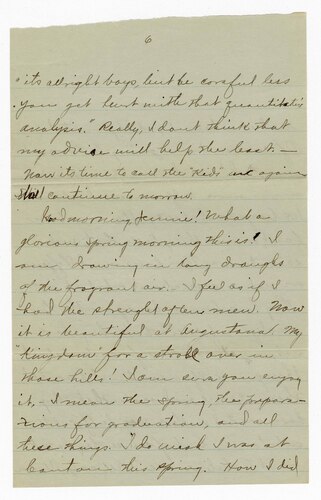 6
"its allright boys, but be careful less
you get hurt with that quantitative
analysis." Really, I dont think that
my advice will help the least —
Now its time to call the "Kids" again
Shall continue to morrow.
Good morning Jennie! What a
glorious spring morning this is! I
am drawing in long draughs
of the fragrant air. I feel as if I
had the strenght of ten men. Now
it is beautiful at Augustana. My
"Kingdom" for a stroll over in
those hills! I am sure you enjoy
it, - I mean the spring, the prepara-
tions for graduation, and all
these things. I do wish I was at
Canton this spring. How I did